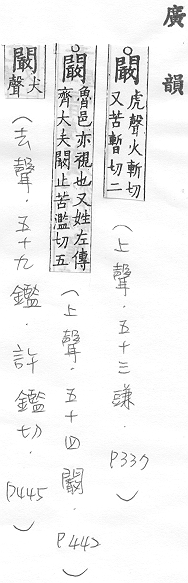 廣韻
闞 虎聲火斬切又苦暫切二
（上聲．五十三豏．P337）
闞 魯邑亦視也又姓左傳齊大夫闞止苦濫切五
（上聲．五十四闞．P442）
闞 犬聲
（去聲．五十九鑑．許鑑切．P445）